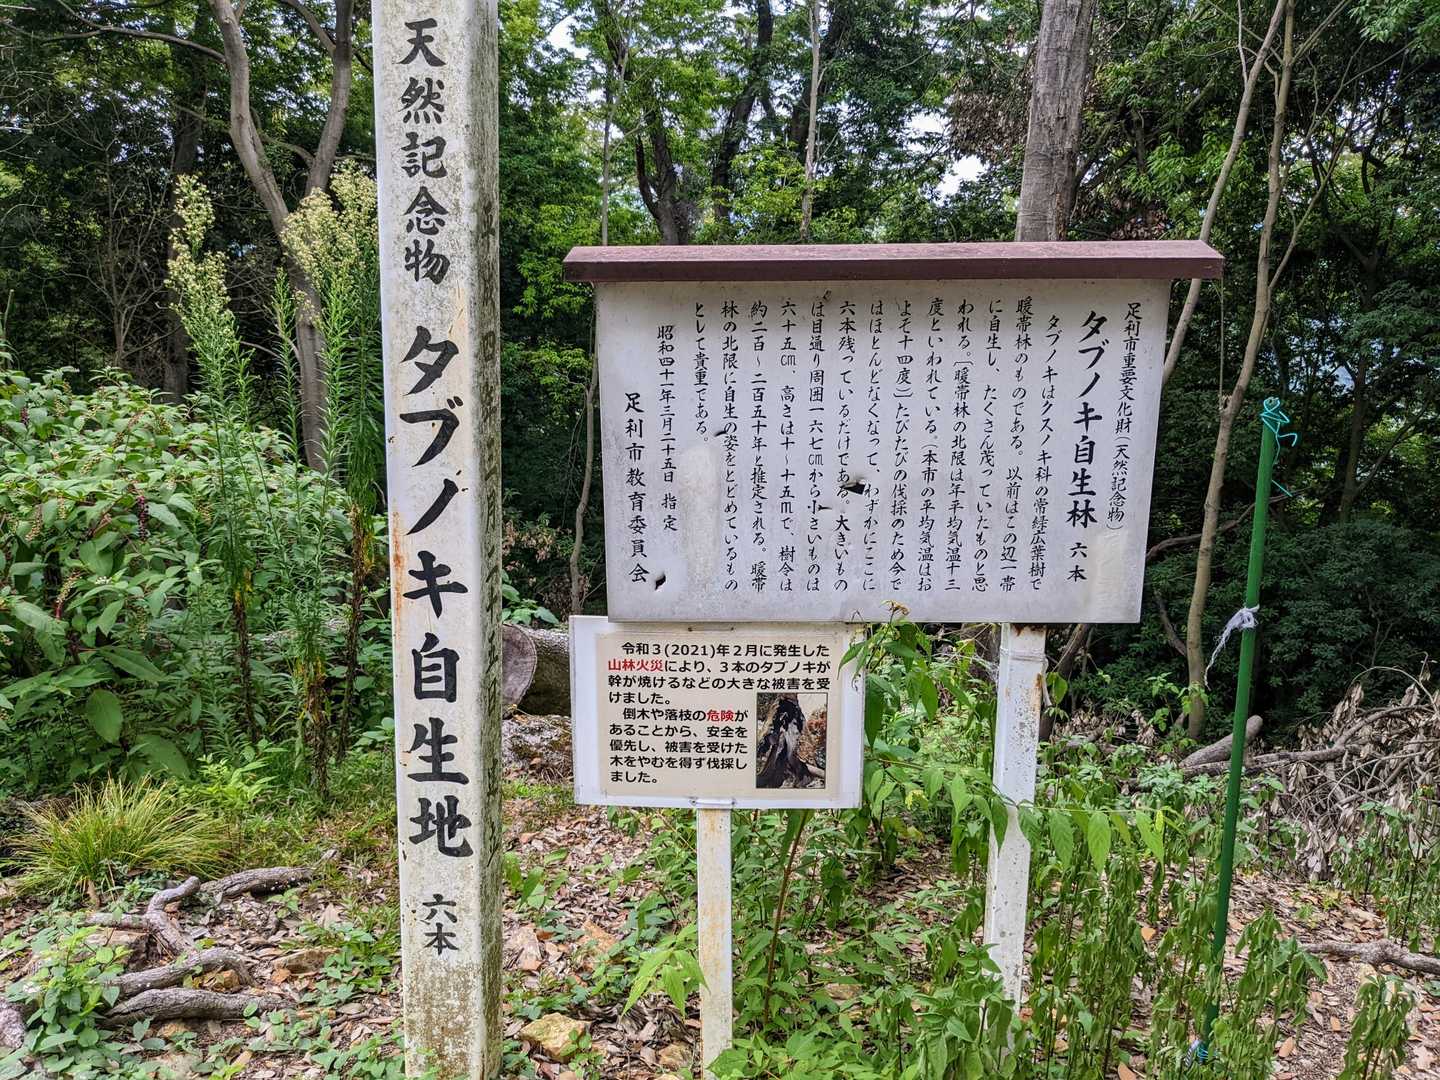 天然記念物 タブノキ自生地 六本
足利市重要文化財(天然記念物)
タブノキ自生林 六本
タブノキはクスノキ科の常緑広葉樹で
暖帯林のものである。以前はこの辺一帯
に自生し、たくさん茂っていたものと思
われる。〔暖帯林の北限は年平均気温十三
度といわれている。(本市の平均気温はお
よそ十四度)〕たびたびの伐採のため今で
はほとんどなくなって、わずかにここに
六本残っているだけである。大きいもの
は目通り周囲一六七㎝から小さいものは
六十五㎝、高さは十~十五mで、樹令は
約二百~二百五十年と推定される。暖帯
林の北限に自生の姿をとどめているもの
として貴重である。
昭和四十一年三月二十五日 指定
足利市教育委員会
令和3(2021)年2月に発生した
山林火災により、3本のタブノキが
幹が焼けるなどの大きな被害を受
けました。
倒木や落枝の危険が
あることから、安全を
優先し、被害を受けた
木をやむを得ず伐採し
ました。